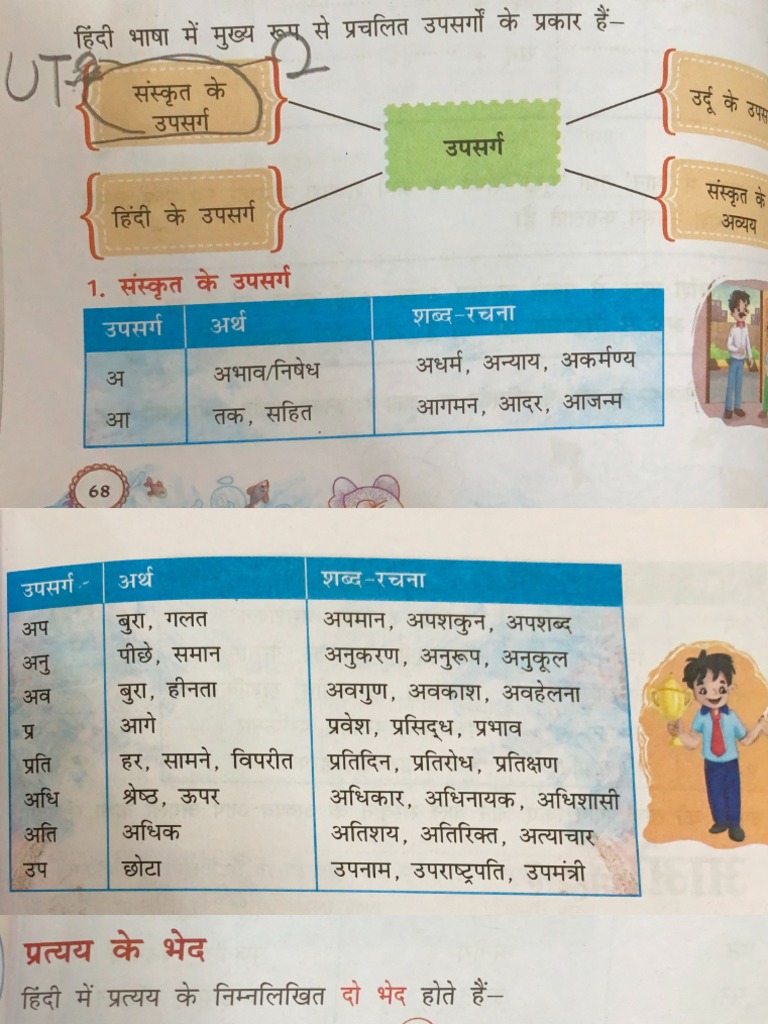 हिंदी भाषा में मुख्य रूप से प्रचलित उपसर्गों के प्रकार हैं–
UT 2
संस्कृत के
उपसर्ग
हिंदी के उपसर्ग
उपसर्ग
उर्दू के
संस्कृत के
अव्यय
1. संस्कृत के उपसर्ग
उपसर्ग अर्थ शब्द-रचना
अ अभाव/निषेध अधर्म, अन्याय, अकर्मण्य
आ तक, सहित आगमन, आदर, आजन्म
68
उपसर्ग - अर्थ शब्द-रचना
अप बुरा, गलत अपमान, अपशकुन, अपशब्द
अनु पीछे, समान अनुकरण, अनुरूप, अनुकूल
अव बुरा, हीनता अवगुण, अवकाश, अवहेलना
प्र आगे प्रवेश, प्रसिद्ध, प्रभाव
प्रति हर, सामने, विपरीत प्रतिदिन, प्रतिरोध, प्रतिक्षण
अधि श्रेष्ठ, ऊपर अधिकार, अधिनायक, अधिशासी
अति अधिक अतिशय, अतिरिक्त, अत्याचार
उप छोटा उपनाम, उपराष्ट्रपति, उपमंत्री
प्रत्यय के भेद
हिंदी में प्रत्यय के निम्नलिखित दो भेद होते हैं–